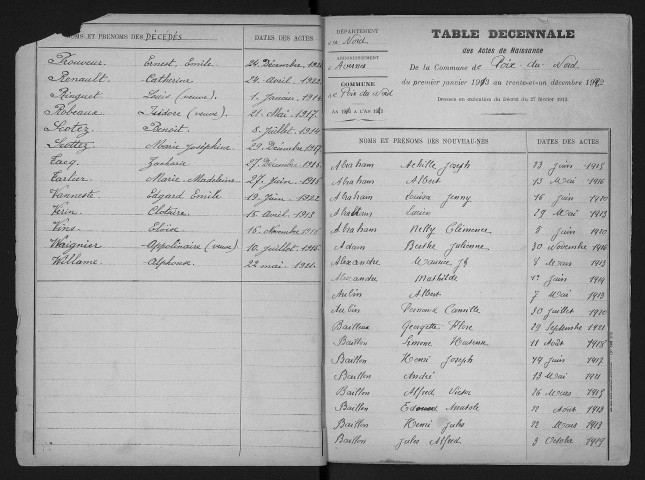 NOMS ET PRÉNOMS DES DÉCÉDÉS DATES DES ACTES
Prouveur Ernest, Emile 24 Décembre
Renault Catherine 24 Avril 1922
Ringuet Louis (veuve) 1 Janvier 1914
Robeaux Isidore (veuve) 21 Mai 1917
Scotez Benoit 8 Juillet 1914
Scottez Marie Joséphine 29 Décembre 1917
Tacq Zacharie 27 Décembre
Tarlier Marie Madeleine 27 Juin
Vanneste Edgard Emile 19 Juin 1922
Verin Clotaire 15 Avril 1913
Vins Eloïse Novembre
Waignier Appolinaire (veuve) 10 Juillet
Willame Alphonse 22 mai 1921
DÉPARTEMENT
du Nord
ARRONDISSEMENT
d'Avesnes
COMMUNE
de Poix du Nord
TABLE DÉCENNALE
des Actes de Naissance
De la Commune de Poix-du-Nord
du premier janvier 1913 au trente-et-un décembre 1922
NOMS ET PRÉNOMS DES NOUVEAU-NÉS DATES DES ACTES
Abraham Achille Joseph 23 Juin
Abraham Albert 13 Mai 1916
Abraham Louisa Jenny 16 Juin
Abraham Lucien 29 Mai 1913
Abraham Nelly Clémence 5 Juin
Adam Berthe Julienne 30 Novembre 1916
Alexandre Maurice Jh 8 Mars 1913
Alexandre Mathilde Juin 1914
Aubin Albert 7 Mai
Aubin Fernand Camille 30 Juillet
Bailleux Georgette Flore 29 Septembre
Baillon Simone 11 Août
Baillon Henri Joseph Juin
Baillon André 13 Mai
Baillon Alfred Victor 26 Mars
Baillon Edouard Anatole Août 1913
Baillon Henri Jules Mars 1913
Baillon Jules Alfred 3 Octobre 1919